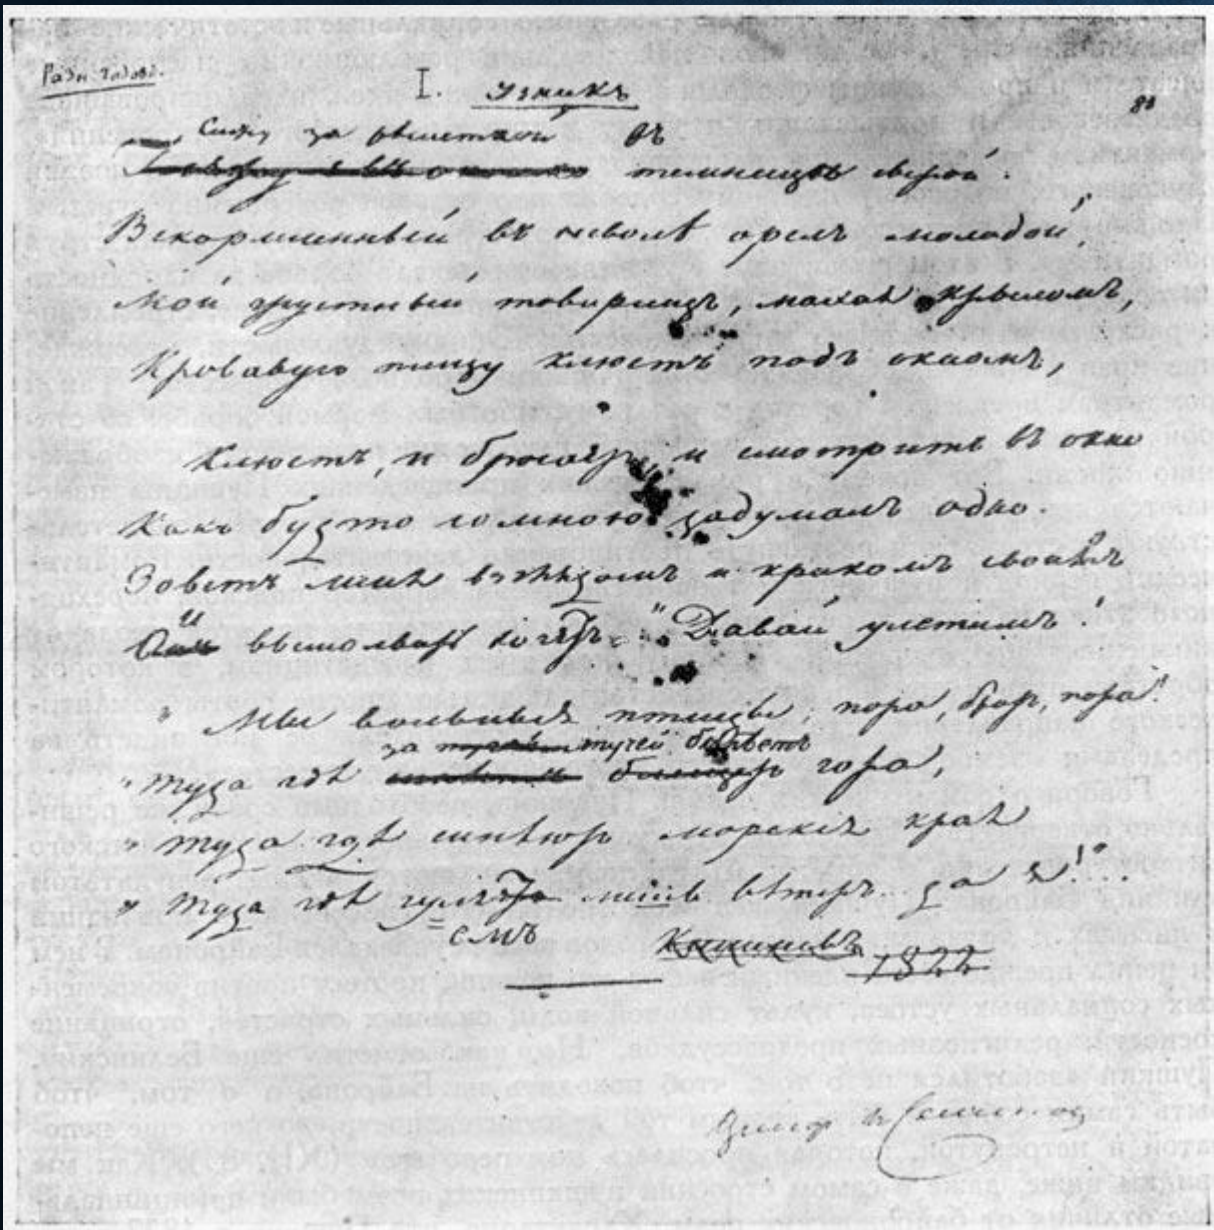 I. Узникъ
Сижу за рѣшеткой въ
темницѣ сырой.
Вскормленный въ неволѣ орелъ молодой,
Мой грустный товарищъ, махая крыломъ,
Кровавую пищу клюетъ подъ окномъ,
Клюетъ, и бросаетъ, и смотритъ въ окно
Какъ будто со мною задумалъ одно.
Зоветъ меня взглядомъ и крикомъ своимъ
И вымолвить хочетъ: "Давай улетимъ!
" Мы вольныя птицы; пора, братъ, пора!
за тучей бѣлѣетъ
" Туда гдѣ гора,
" Туда гдѣ синѣютъ морскіе края
" Туда гдѣ гуляетъ лишь вѣтеръ да я!"...
емъ Кишиневъ 1822